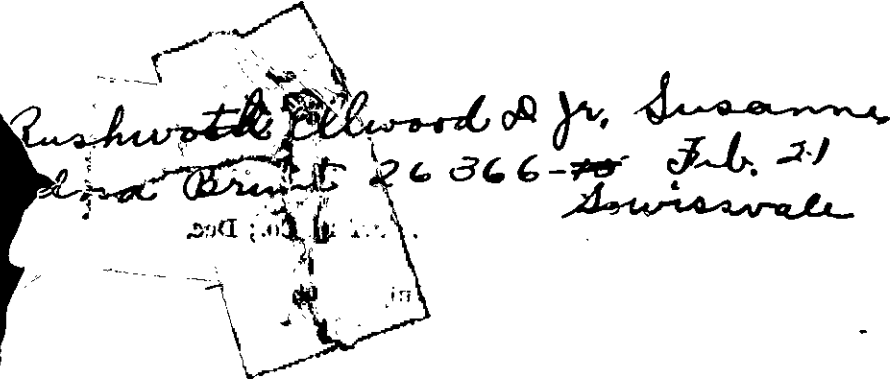 Rushwoth Ellwood D Jr, Susanne
Brunt 26 366- Feb. 21
Sowissvale